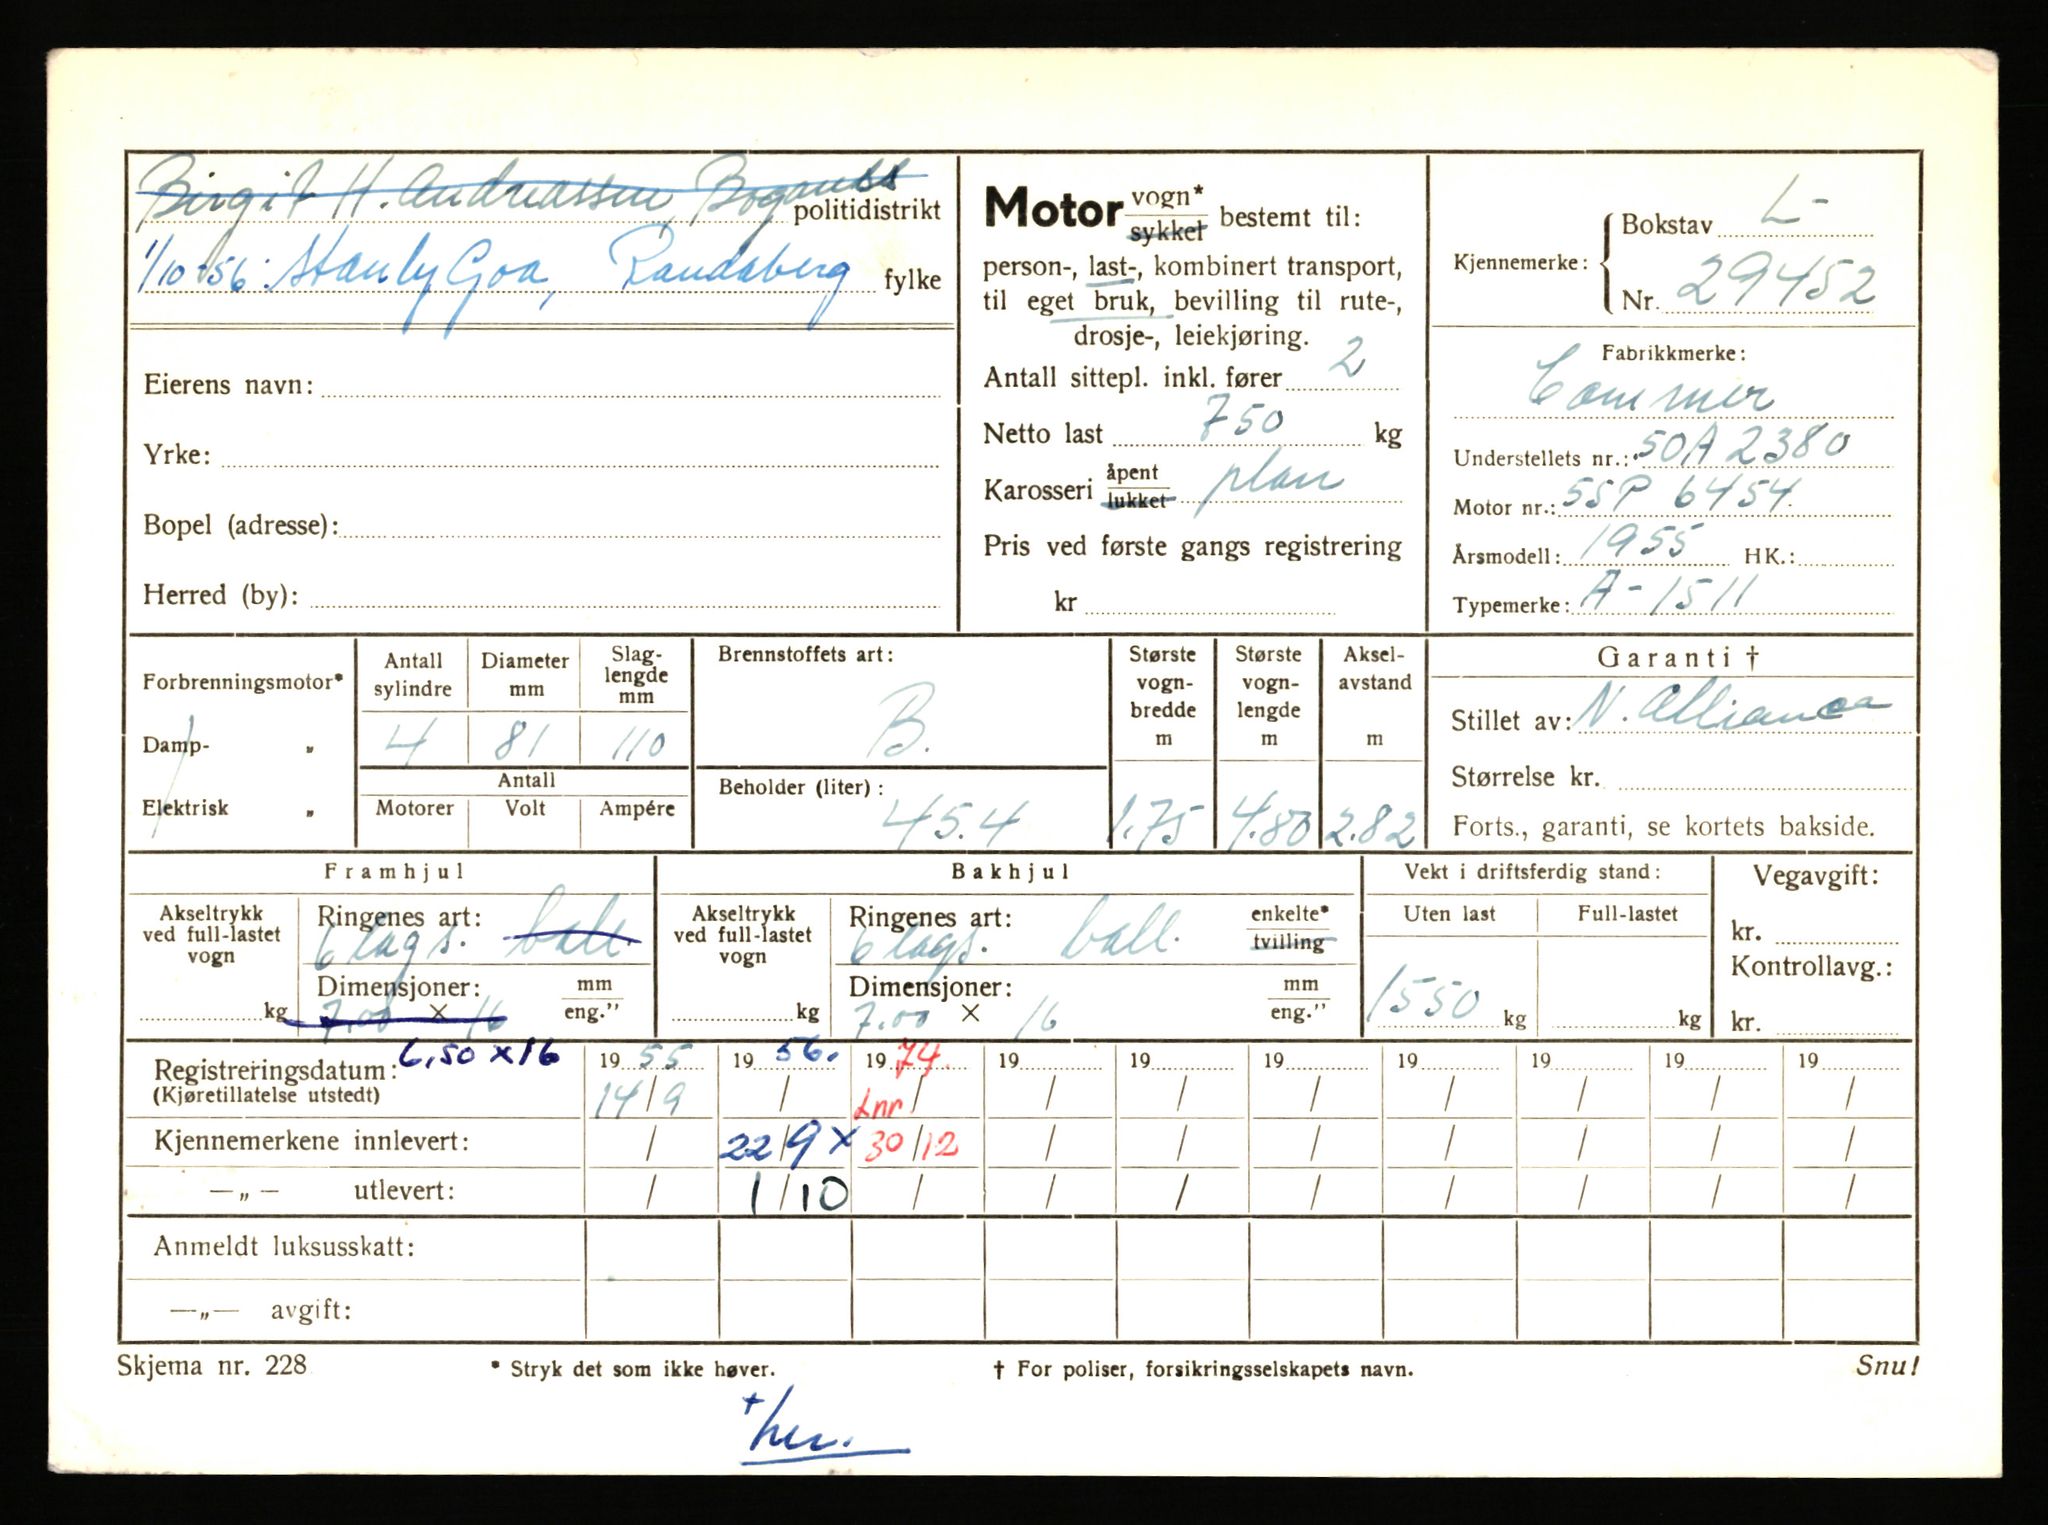 Birgit H. Andreassen, Boganes politidistrikt
1/10-56: Stanly Goa, Randaberg fylke
Eierens navn:
Yrke:
Bopel (adresse):
Herred (by):
Motor vogn* sykkel bestemt til:
person-, last-, kombinert transport,
til eget bruk, bevilling til rute-,
drosje-, leiekjøring.
Antall sittepl. inkl. fører 2
Netto last 750 kg
Karosseri åpent lukket plan
Pris ved første gangs registrering
kr
Kjennemerke: Bokstav L-
Nr. 29452
Fabrikkmerke:
Commer
Understellets nr.: 50A2380
Motor nr.: 55P 6454
Årsmodell: 1955 HK.:
Typemerke: A-1511
Forbrenningsmotor*
Damp- „
Elektrisk „
Antall sylindre Diameter mm Slaglengde mm
4 81 110
Antall
Motorer Volt Ampére
Brennstoffets art:
B.
Beholder (liter):
45.4
Største vognbredde m
1.75
Største vognlengde m
4.80
Akselavstand m
2.82
Garanti †
Stillet av: N. Alliance
Størrelse kr.
Forts., garanti, se kortets bakside.
Framhjul
Akseltrykk ved full-lastet vogn
kg
Ringenes art:
6 lags. ball.
Dimensjoner: mm
7.00 × 16 eng.”
6,50 x 16
Bakhjul
Akseltrykk ved full-lastet vogn
kg
Ringenes art: enkelte* tvilling
6 lags. ball.
Dimensjoner: mm
7.00 × 16 eng.”
Vekt i driftsferdig stand:
Uten last Full-lastet
1550 kg kg
Vegavgift:
kr.
Kontrollavg.:
kr.
Registreringsdatum: 19 55 19 56. 19 74. 19 19 19 19 19 19 19
(Kjøretillatelse utstedt) 14/9 / Lnr / / / / / / / /
Kjennemerkene innlevert: / 22/9 x 30/12 / / / / / / /
—„— utlevert: / 1/10 / / / / / / / /
Anmeldt luksusskatt:
—„— avgift:
Skjema nr. 228 * Stryk det som ikke høver. † For poliser, forsikringsselskapets navn. Snu!